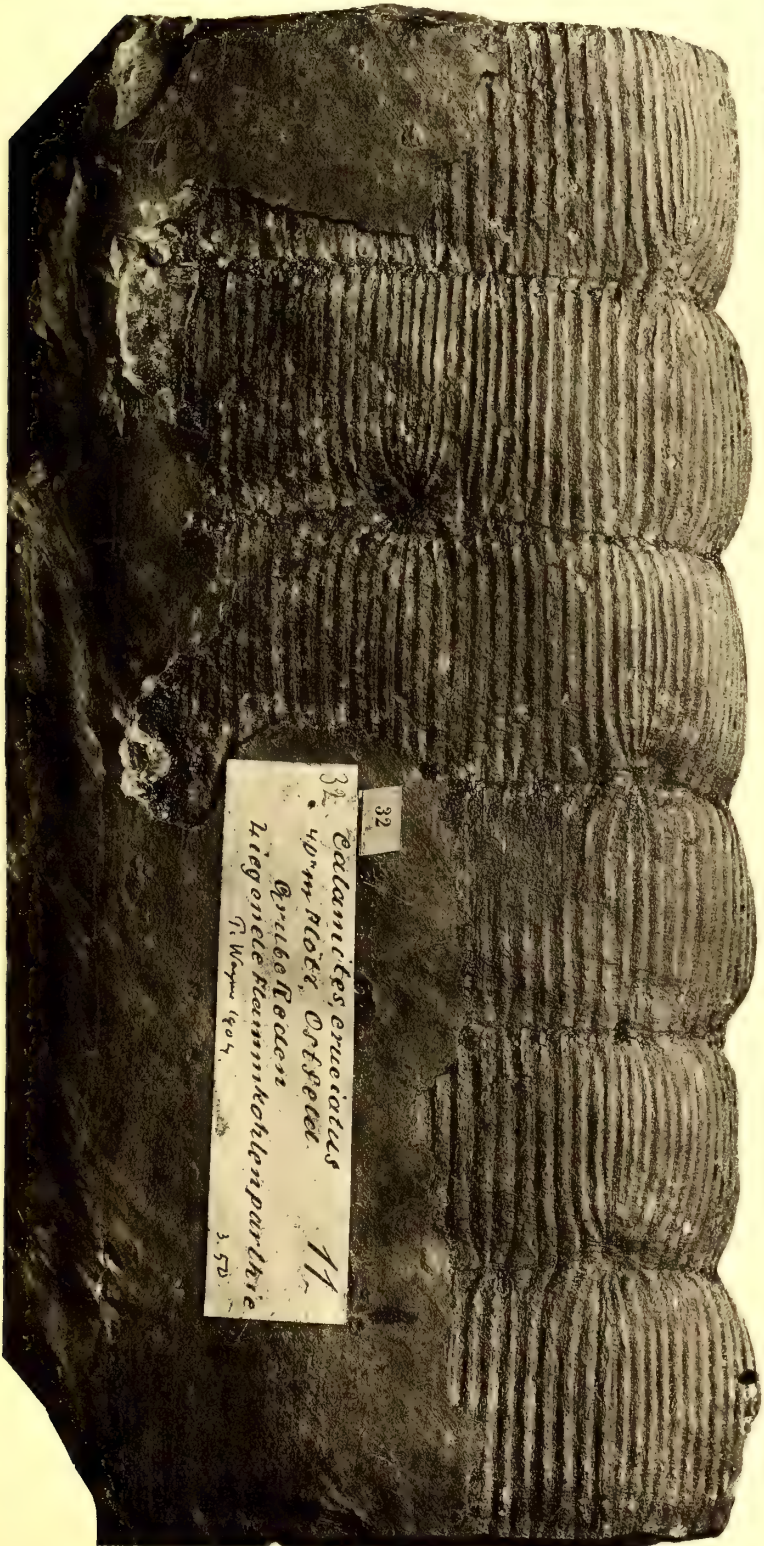 32
32. Calamites cruciatus
Flötz, Ostfeld.
11
Grube Reden
Liegende Flammkohlenparthie
1904.
3.50